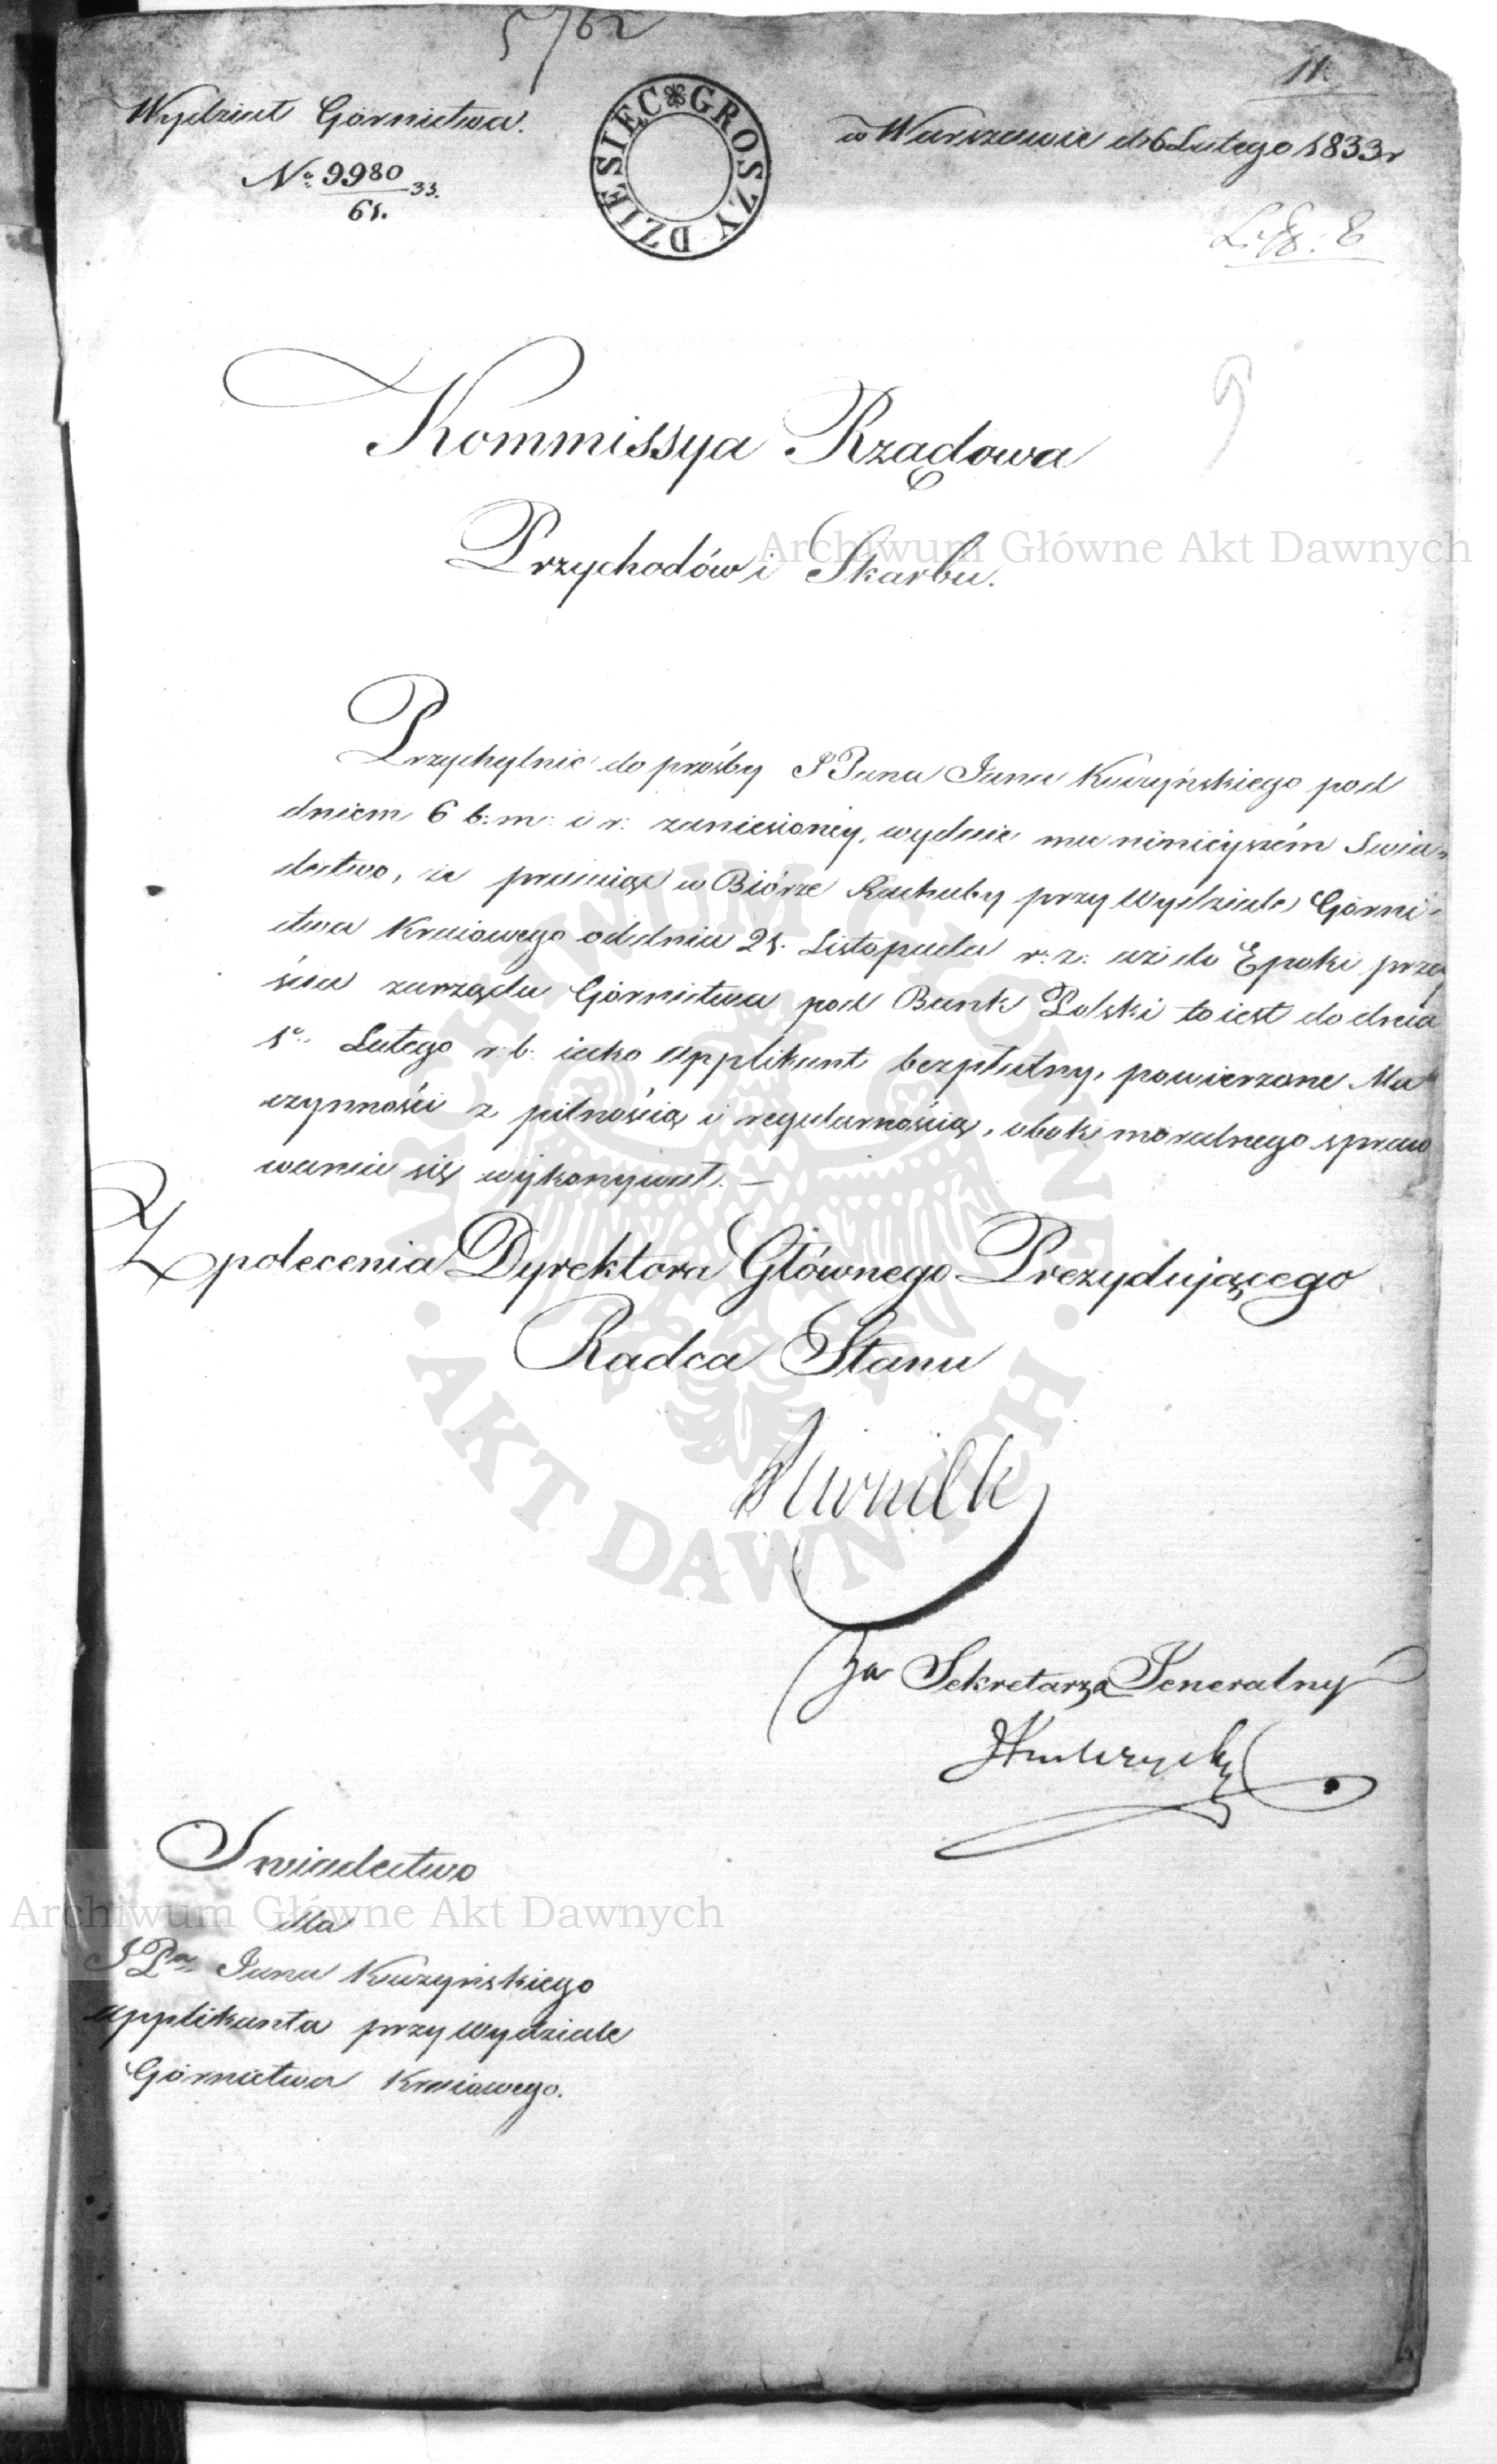 5762
11.
Wydział Górnictwa.
DZIESIĘC GROSZY
w Warszawie d. 6 Lutego 1833 r
No. 9980 33.
61.
8
9
Kommissya Rządowa
Przychodów i Skarbu.
Archiwum Główne Akt Dawnych
Przychylnie do prośby J Pana Jana Kuczyńskiego pod
dniem 6 b: m: i r: zaniesioney, wydaie mu ninieyszém Swia-
dectwo, że pracuiąc w Biórze Rachuby przy Wydziale Górni-
ctwa Kraiowego od dnia 21. Listopada r: z: aż do Epoki przey
ścia zarządu Górnictwa pod Bank Polski to iest do dnia
1o. Lutego r: b: iako Applikant bezpłatny, powierzone Mu
czynności z pilnością i regularnością, obok moralnego sprawo
wania się wykonywał. —
Z polecenia Dyrektora Głównego Prezydującego
Radca Stanu
Za Sekretarza Jeneralny
ARCHIWUM GŁÓWNE AKT DAWNYCH
Swiadectwo
dla
Archiwum Główne Akt Dawnych
J Pa Jana Kuczyńskiego
Applikanta przy Wydziale
Górnictwa Kraiowego.